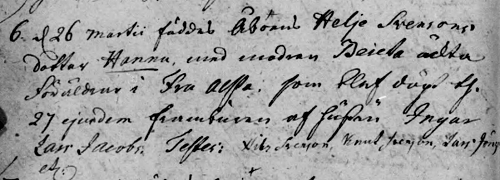 6. d 26 martii föddes Åboens Helje Svensons
dotter Hanna, med modren Beieta ächta
föräldrar i Fra som blef döpt th.
27 ejusdem frambüren af hüstru Ingar
Lars Jacobs. Testes: Nils Svenson, Knut Svenson, Lars Jöns